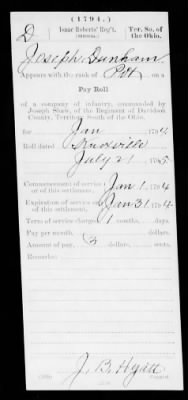 (1794.)
D Isaac Roberts' Reg't, Ter. So. of
the Ohio.
Joseph Dunham
Appears with the rank of Pvt on a
Pay Roll
of a company of infantry, commanded by
Joseph Shaw, of the Regiment of Davidson
County, Territory South of the Ohio,
for Jan 1794.
Roll dated Knoxville
July 21 1795.
Commencement of service or of this settlement. Jan 1 1794
Expiration of service or of this settlement. Jan 31 1794
Term of service charged, 1 months, days.
Pay per month, dollars, cents.
Amount of pay, 3 dollars, cents.
Remarks:
J. B. Hyatt
Copyist.